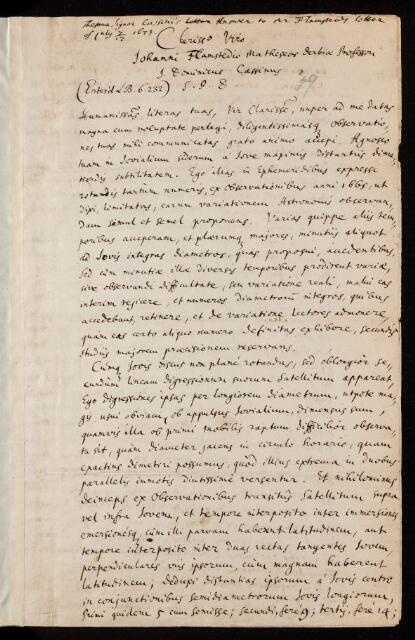 Signor Cassini's Answer to Mr Flamsteeds letter
of July 7/17 1673.
Clarissō Viro
Johanni Flamstedio Matheseos Derbiæ Professori
J. Dominicus Cassinus
(Enter'd LB. 6. 232) S. P. D
59
Humanissimas literas tuas, Vir Clarissē, nuper ad me datas
magna cum voluptate perlegi, diligentissimasq; observatio-
nes tuas mihi communicatas grato animo accepi. Agnosco
tuam in Jovialium siderum a Jove maximis distantiis dime-
tiendis subtilitatem. Ego illas in Ephemeridibus expressi
rotundis tantum numeris, ex observationibus anni 1665, ut
dixi, limitatos, earum variationem Astronomis observan-
dam simul et semel proponens. Varias quippe aliis tem-
poribus acceperam, et plærumq; majores, minutiis aliquot
ad Jovis integras diametros, quas proposui, accedentibus,
sed cum minutiæ illæ diversis temporibus prodirent variæ,
sive observandi difficultate, seu variatione reali, malui eas
interim rejicere, et numeros diametrorum integros, quibus
accedebant, retinere, et de variatione Lectores admonere,
quam eas certo aliquo numero definitas exhibere, secundis
studiis majorem præcisionem reservans.
Cumq; Jovis discus non planè rotundus, sed oblongior se-
cundum lineam digressionum suorum Satellitum appareat,
Ego digressiones ipsas per longiorem diametrum, utpote ma-
gis usui obviam, ob appulsus Jovialium, dimensus sum,
quamvis illa ob primi mobilis raptum difficilior observa-
tu sit, quam diameter jacens in circulo horario, quam
exactius dimetiri possumus, quòd illius extrema in duobus
parallelis immotis diutissimè versentur. Et nihilominus
deinceps ex Observationibus transitûs Satellitum supra
vel infra Jovem, et tempore interposito inter immersiones
emersionesq; cum illi parvam haberent latitudinem, aut
tempore interposito inter duas rectas tangentes Jovem
perpendiculares viis ipsorum, cùm magnam haberent
latitudinem; deduxi distantias ipsorum à Jovis centro
in conjunctionibus semidiametrorum Jovis longiorum,
primi quidem 5 cum semisse; secundi, ferè 9; tertij, ferè 14;